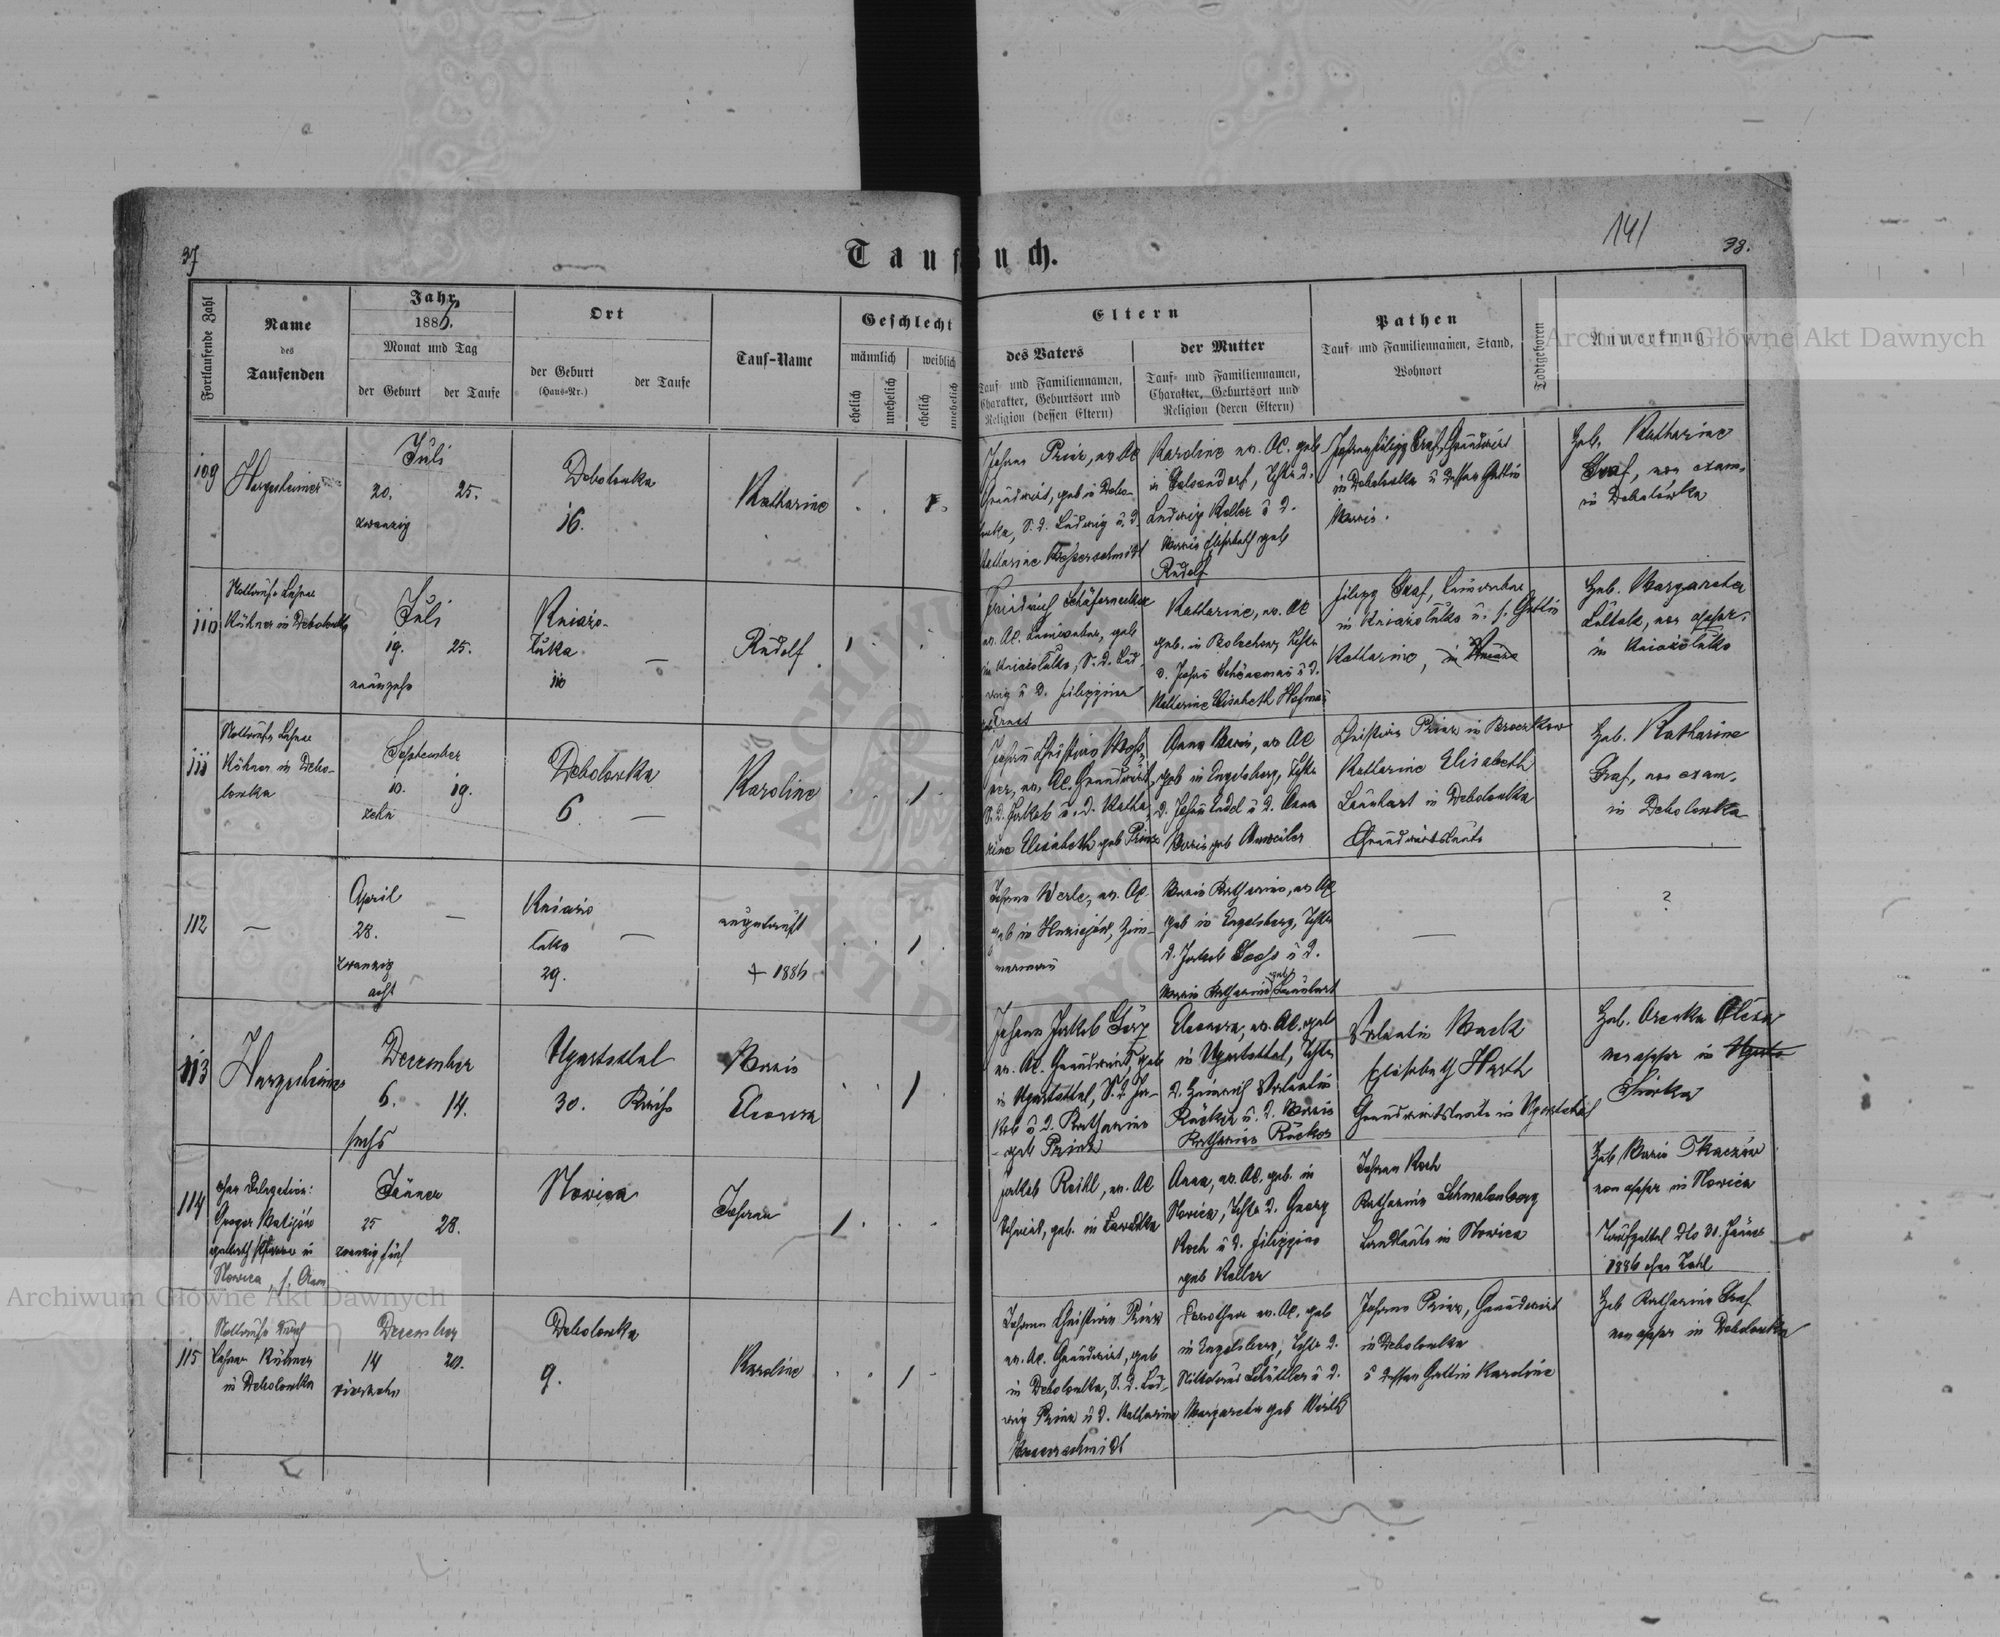 37
141
38.
Taufbuch.
Fortlaufende Zahl
Name
des
Taufenden
Jahr
1886.
Monat und Tag
der Geburt
der Taufe
Ort
der Geburt
(Haus-Nr.)
der Taufe
Tauf-Name
Geschlecht
männlich
weiblich
ehelich
unehelich
ehelich
unehelich
Eltern
des Vaters
Tauf- und Familiennamen,
Charakter, Geburtsort und
Religion (dessen Eltern)
der Mutter
Tauf- und Familiennamen,
Charakter, Geburtsort und
Religion (deren Eltern)
Pathen
Tauf- und Familiennamen, Stand,
Wohnort
Todtgeboren
Anmerkung
109
Hargesheimer
Juli
20.
25.
zwanzig
Debolowka
16.
Katharine
Johann Prinz, ev. AC
Grundwirt, geb in Debo-
lowka, S. d. Ludwig u. d.
Katharine Messerschmidt
Karoline ev. AC. geb
in Gelsendorf, Tchtr d.
Ludwig Keller u d.
Maria Elisabeth geb
Rudolf
Johann Filipp Graf, Grundwirt
in Debolowka u dessen Gattin
Maria.
Heb. Katharine
Graf, non exam.
in Debolówka
110
Nottaufe Lehrer
Kühner in Debolowka
Juli
19.
25.
neunzehn
Kniazo-
luka
110
—
Rudolf
Friedrich Schäfernecker
ev. AC. Leinweber, geb
in Kniaziołuka, S. d. Lud-
wig u d. Filippine
geb Ernst
Katharine, ev. AC
geb. in Bolechow, Tchtr
d. Johann Schönemann u d.
Katharine Elisabeth Hofmann
Filipp Graf, Leinweber
in Kniazoluka u. s. Gattin
Katharine, in Kniazo
Heb. Margaretha
Lultak, non appr.
in Kniaziołuka
111
Nottaufe Lehrer
Kühner in Debo-
lowka
September
10.
19.
zehn
Debolowka
6
—
Karoline
Johann Christian
ner, ev. AC. Grundwirt,
S. d. Jakob u. d. Katha-
rine Elisabeth geb Prinz
Anna Maria, ev AC
geb in Engelsberg, Tchtr
d. Johann Endel u d. Anna
Maria geb Anweiler
Christian Prinz in Broczkow
Katharine Elisabeth
Leonhart in Debolowka
Grundwirtsleute
Heb. Katharine
Graf, non exam.
in Debolowka
112
—
April
28.
—
zwanzig
acht
Kniazio
luka
29.
—
ungetauft
+ 1886
Johann Werle, ev. AC.
geb in Hoziejów, Zim-
mermann
Maria Katharina, ev AC
geb in Engelsberg, Tchtr
d. Jakob Sooss u d.
Maria Katharina geb Leonhart
—
?
113
Hargesheimer
December
6.
14.
sechs
Ugartsthal
30.
Maria
Eleonora
Johann Jakob Görz
ev. AC. Grundwirt, geb
in Ugartsthal, S. d. Ja-
kob u d. Katharina
geb Prinz
Eleonora, ev. AC. geb
in Ugartsthal, Tchtr
d. Heinrich Valentin
Rücker u. d. Maria
Katharina Rücker
Valentin Mack
Elisabeth Harth
Grundwirtsleute in Ugartsthal
Heb.
non appr in Ugarts
Siwka
114
Jänner
25
28.
zwanzig fünf
Nowica
Johann
Jakob Reihl, ev. AC
Schmied, geb. in Landestreu
Anna, ev. AC. geb. in
Nowica, Tchtr d. Georg
Koch u d. Filippina
geb Keller
Johann Koch
Katharina Schmalenberg
Landleute in Nowica
Heb Maria Tkaczów
non appr in Nowica
Taufzettel dto 31. Jänner
1886 ohne Zahl
115
Nottaufe durch
Lehrer Kühner
in Debolowka
December
14
20.
vierzehn
Debolowka
9.
Karoline
Johann Christian Prinz
ev. AC. Grundwirt, geb
in Debolowka, S. d. Lud-
wig Prinz u d. Katharine
Messerschmidt
Dorothea ev. AC. geb
in Engelsberg, Tchtr d.
Nikolaus Schüttler u d.
Margareta geb Wirth
Johann Prinz, Grundwirt
in Debolowka
u dessen Gattin Karoline
Heb Katharina Graf
non appr in Debolowka
Archiwum Główne Akt Dawnych
Archiwum Główne Akt Dawnych